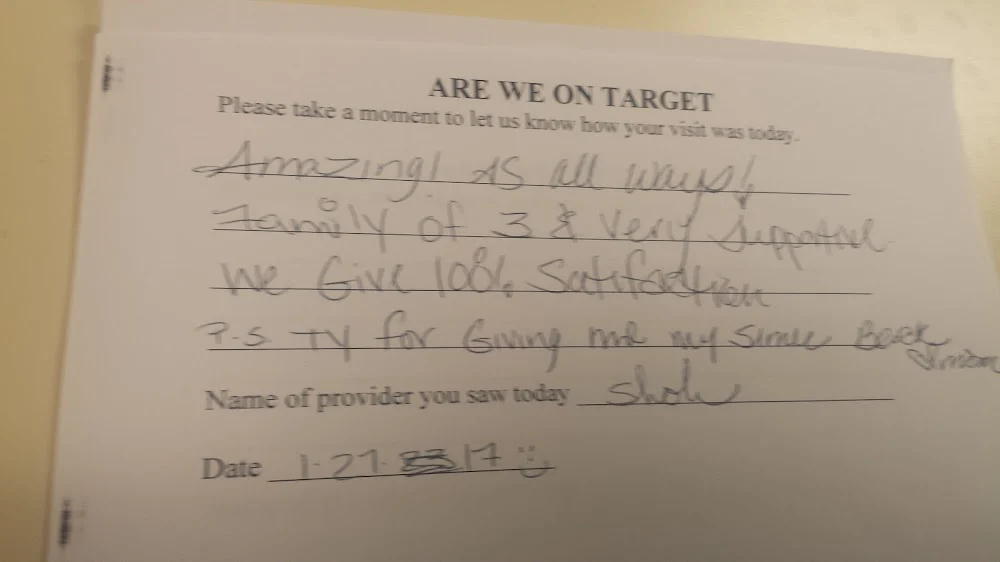 ARE WE ON TARGET
Please take a moment to let us know how your visit was today.
Amazing! AS all ways!
Family of 3 & Very Supportive
We Give 100% Satifaction
P.S TY for Giving me my Smile Back
Name of provider you saw today
Date 1-27-17